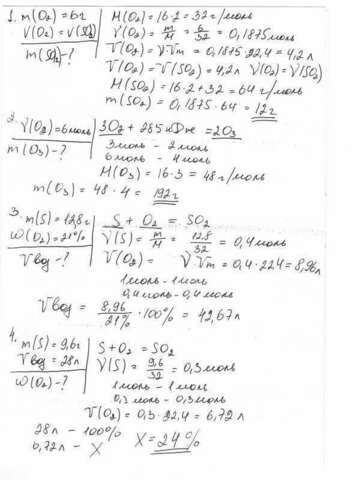 1. m(O₂)=6г
V(O₂)=V(SO₂)
m(SO₂)-?
M(O₂)=16·2=32г/моль
ν(O₂)=m/M=6/32=0,1875моль
V(O₂)=ν·Vm=0,1875·22,4=4,2л
V(O₂)=V(SO₂)=4,2л ν(O₂)=ν(SO₂)
M(SO₂)=16·2+32=64 г/моль
m(SO₂)=0,1875·64=12г
2. ν(O₂)=6моль
m(O₃)-?
3O₂+285кДж=2O₃
3моль - 2моль
6моль - 4моль
M(O₃)=16·3=48г/моль
m(O₃)=48·4=192г
3. m(S)=12,8г
W(O₂)=21%
Vвоз-?
S+O₂=SO₂
ν(S)=m/M=12.8/32=0,4моль
V(O₂)=ν·Vm=0,4·22.4=8,96л
1моль-1моль
0,4моль-0,4моль
Vвоз=8,96/21%·100%=42,67л
4. m(S)=9,6г
Vвоз=28л
W(O₂)-?
S+O₂=SO₂
ν(S)=9,6/32=0,3моль
1моль-1моль
0,3моль-0,3моль
V(O₂)=0,3·22,4=6,72л
28л - 100%
6,72л - X
X=24%